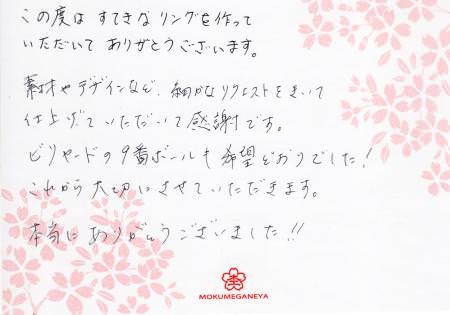 この度は すてきな リングを作って
いただいて ありがとうございます。
素材やデザインなど、細かなリクエストをきいて
仕上げていただいて感謝です。
ビリヤードの9番ボールも希望どおりでした!
これから大切にさせていただきます。
本当にありがとうございました!!
MOKUMEGANEYA